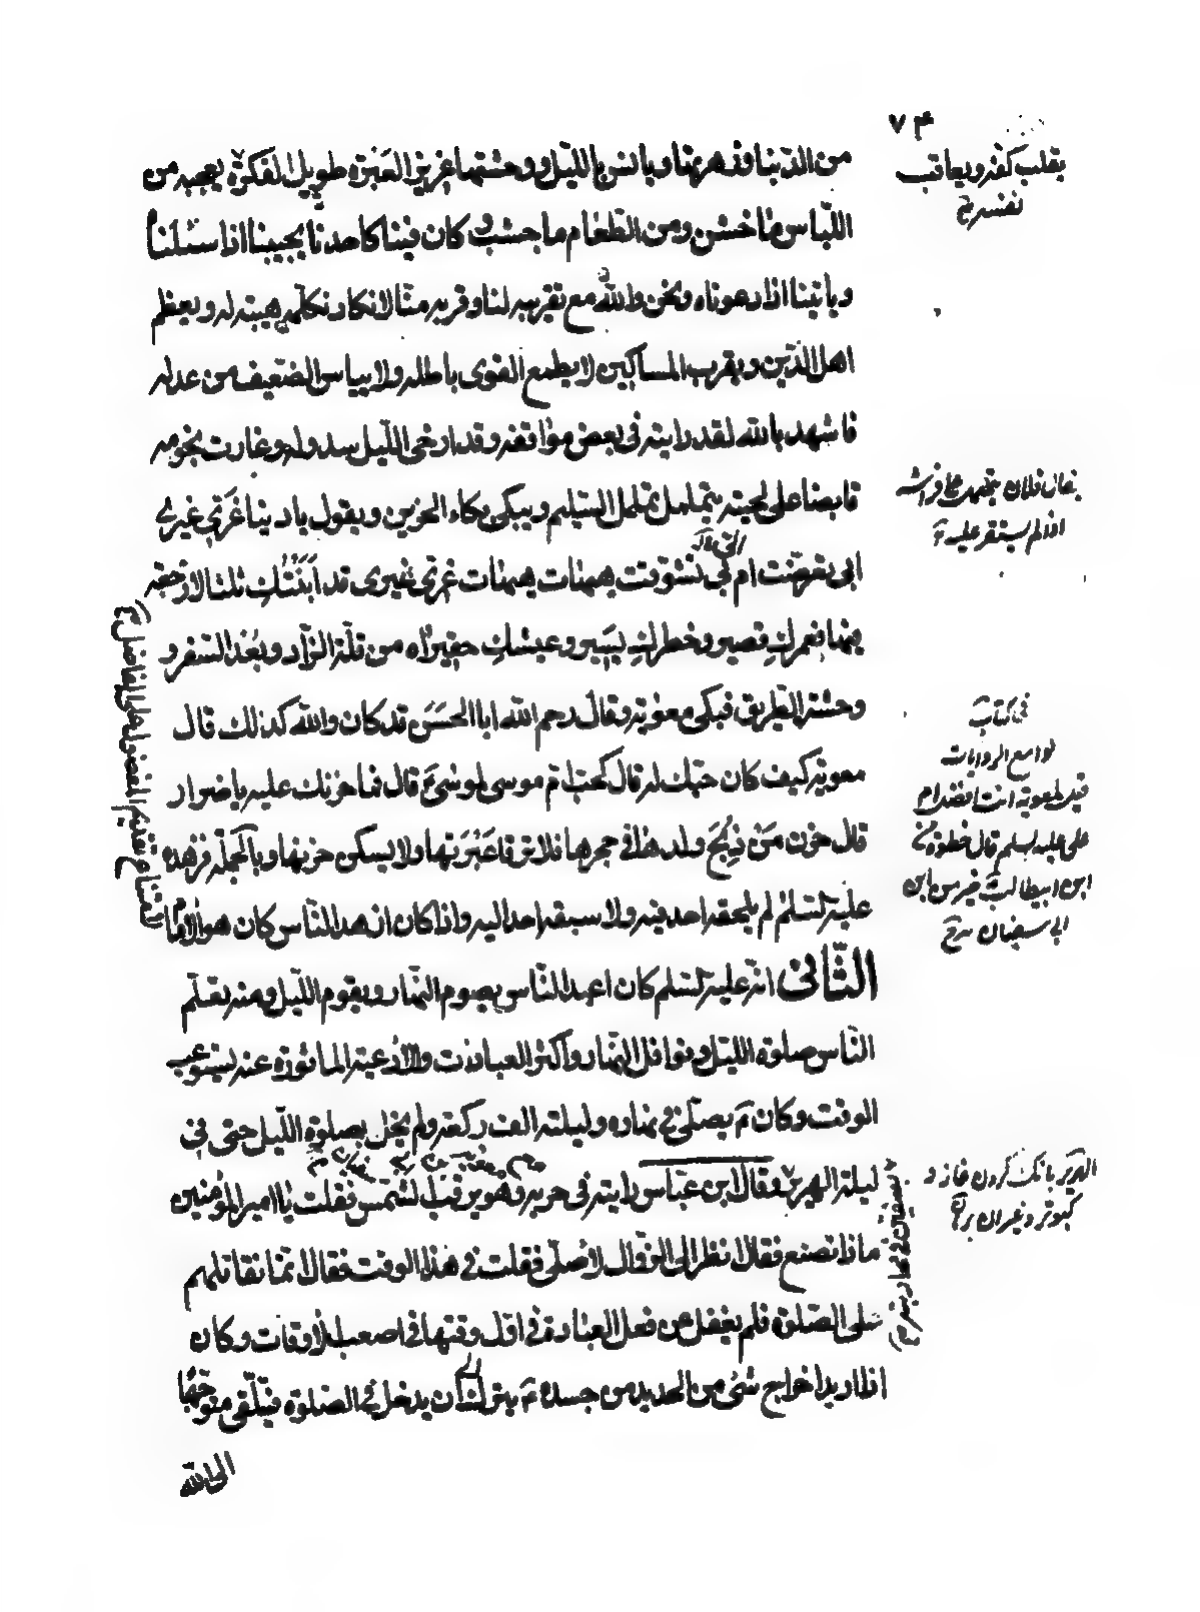 من الدنيا وزهرتها ويانس بالليل ووحشتها غزير العَبْرَة طويل الفكرة يعجبه من
اللباس ما خشن ومن الطعام ما جشب وكان فينا كاحدنا يجيبنا اذا سئلناه
وياتينا اذا دعوناه ونحن والله مع تقريبه لنا وقربه منا لا نكاد نكلمه هيبة له ويعظم
اهل الدين ويقرب المساكين لا يطمع القوى باطله ولا يياس الضعيف من عدله
فاشهد بالله لقد رايته فى بعض مواقفه وقد ارخى الليل سدوله وغارت نجومه
قابضا على لحيته يتململ تململ السليم ويبكى بكاء الحزين ويقول يا دينا غرّى غيرى
ابى تعرضت ام لى تشوقت هيهات هيهات غرى غيرى قد ابَنْتُكِ ثلثا لا رجعة
فيها فعمركِ قصير وخطركِ يسير وعيشكِ حقير اه من قلة الزاد وبُعْد السفر و
وحشة الطريق فبكى معوية وقال رحم الله ابا الحسن قد كان والله كذلك قال
معوية كيف كان حبك له قال كحب ام موسى لموسى قال فما حزنك عليه يا ضرار
قال حزن مَنْ ذُبِحَ ولدها فى حجرها فلا ترقا عَبْرَتها ولا يسكن حزنها وبالجملة فزهده
عليه السلم لم يلحقه احد فيه ولا سبقه احد اليه واذا كان ازهد الناس كان هو الامام
الثّانى انه عليه السلم كان اعبد الناس يصوم النهار ويقوم الليل ومنه تعلم
الناس صلوة الليل ونوافل النهار واكثر العبادات والادعية الماثورة عنه تستوعب
الوقت وكان ع يصلى فى نهاره وليلته الف ركعة ولم يخل بصلوة الليل حتى فى
ليلة الهرير وقال ابن عباس رايته فى حربه وهو يرقب الشمس فقلت يا امير المؤمنين
ماذا تصنع فقال انظر الى الزوال لاصلى فقلت فى هذا الوقت فقال انما نقاتلهم
على الصلوة فلم يغفل عن فعل العبادة فى اول وقتها فى اصعب الاوقات وكان
اذا اريد اخراج شئ من الحديد من جسده ع يترك الى ان يدخل فى الصلوة فيتلقى متوجها
الى الله
٧٤
يقلب كفه ويعاقب
نفسه خ
يقال فلان يتململ على فراشه
اذا لم يستقر عليه
فى كتاب
لوامع الروايات
قيل لمعوية انت افضل ام
على عليه السلم قال خطوة
ابن ابيطالب خير من ابن
ابى سفيان
الهرير بانك كردن